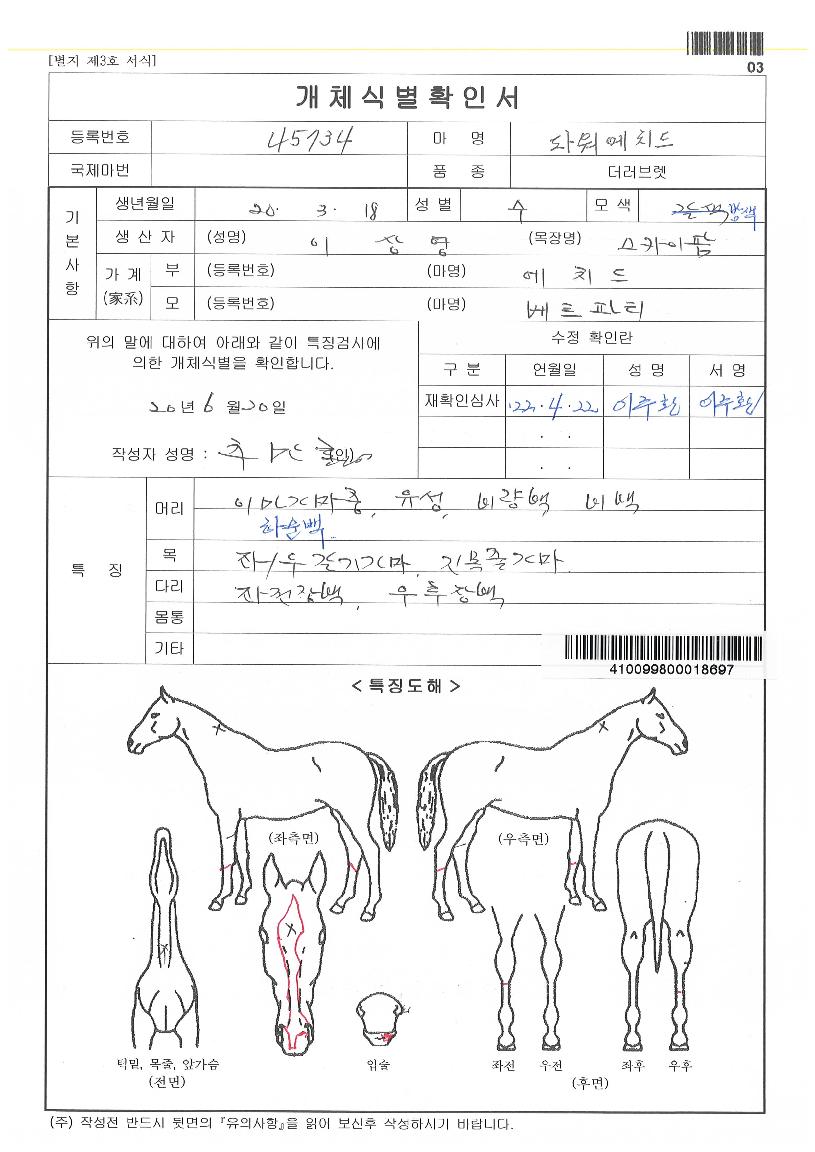 [별지 제3호 서식]
03
개체식별확인서
등록번호 45734 마 명 파워에치드
국제마번 품 종 더러브렛
기본사항
생년월일 20. 3. 18 성별 수 모색 갈색 밤색
생산자 (성명) 이 장 영 (목장명) 스카이팜
가계 (家系) 부 (등록번호) (마명) 에 치 드
모 (등록번호) (마명) 베트파티
위의 말에 대하여 아래와 같이 특징검시에
의한 개체식별을 확인합니다.
20년 6월 20일
작성자 성명 : (인)
수정 확인란
구 분 연월일 성 명 서 명
재확인심사 '22. 4. 22 이주환 이주환
. .
. .
특 징
머리 이마가마중, 유성, 비량백 비백
하순백
목 좌/우 갈기가마, 진목줄가마
다리 좌전장백, 우후장백
몸통
기타
410099800018697
< 특징도해 >
(좌측면) (우측면)
턱밑, 목줄, 앞가슴 입술 좌전 우전 좌후 우후
(전면) (후면)
(주) 작성전 반드시 뒷면의 『유의사항』을 읽어 보신후 작성하시기 바랍니다.